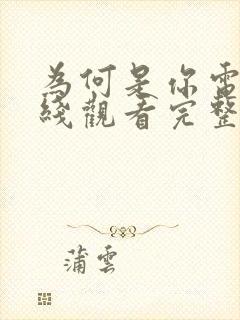 為何是你電
綫觀看完整
蒲雲